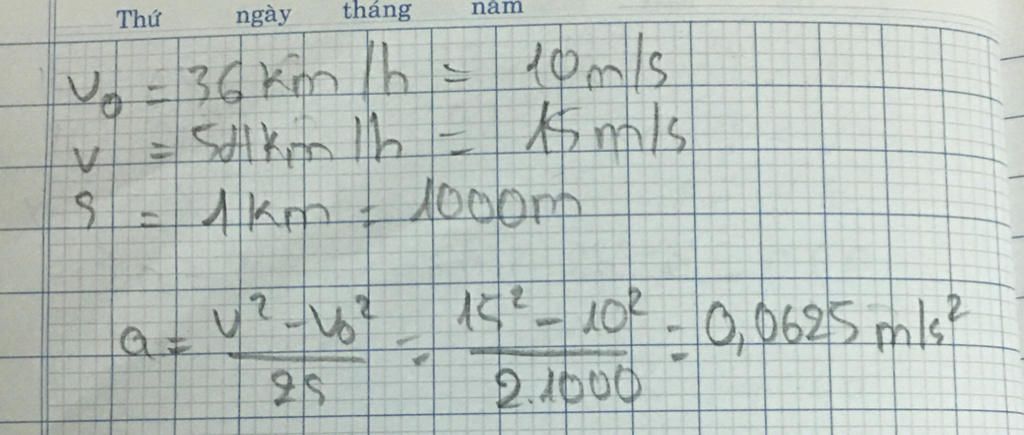 Thứ ngày tháng năm
v₀ = 36km/h = 10m/s
v = 54km/h = 15m/s
s = 1km = 1000m
a = (v² - v₀²)/(2s) = (15² - 10²)/(2.1000) = 0,0625m/s²